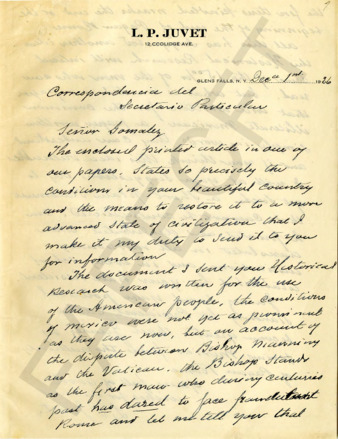 L. P. JUVET
12 COOLIDGE AVE.
GLENS FALLS, N. Y. Dec 1st 1926
Correspondencia del
Secretario Particular
Señor Gomalez
The enclosed printed article in one of
our papers, States so precisely the
conditions in your beautiful country
and the means to restore it to a more
advanced state of civilization that I
make it my duty to send it to you
for information
The document I sent your Historical
Research was written for the use
of the American people, the conditions
of mexico were not yet as prominent
as they are now, but on account of
the dispute between Bishop Manning
and the Vatican, the Bishop Stands
as the first man who during centuries
past has dared to face
Rome and let me tell you that